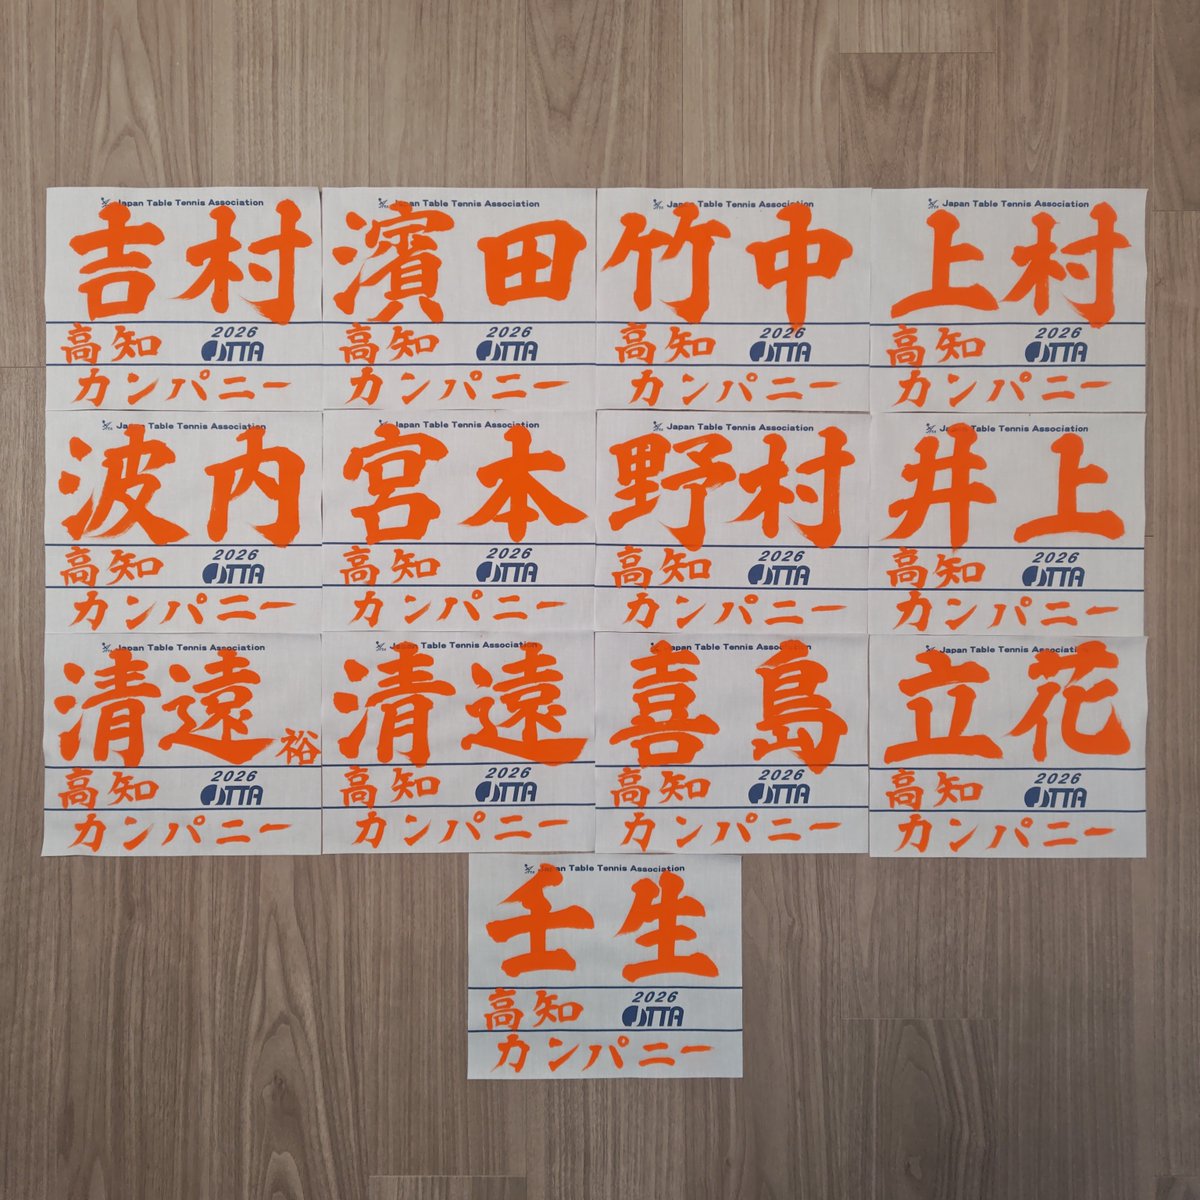 Japan Table Tennis Association
吉村
高知 2026 JTTA
カンパニー
Japan Table Tennis Association
濱田
高知 2026 JTTA
カンパニー
Japan Table Tennis Association
竹中
高知 2026 JTTA
カンパニー
Japan Table Tennis Association
上村
高知 2026 JTTA
カンパニー
Japan Table Tennis Association
波内
高知 2026 JTTA
カンパニー
Japan Table Tennis Association
宮本
高知 2026 JTTA
カンパニー
Japan Table Tennis Association
野村
高知 2026 JTTA
カンパニー
Japan Table Tennis Association
井上
高知 2026 JTTA
カンパニー
Japan Table Tennis Association
清遠 裕
高知 2026 JTTA
カンパニー
Japan Table Tennis Association
清遠
高知 2026 JTTA
カンパニー
Japan Table Tennis Association
喜島
高知 2026 JTTA
カンパニー
Japan Table Tennis Association
立花
高知 2026 JTTA
カンパニー
Japan Table Tennis Association
壬生
高知 2026 JTTA
カンパニー